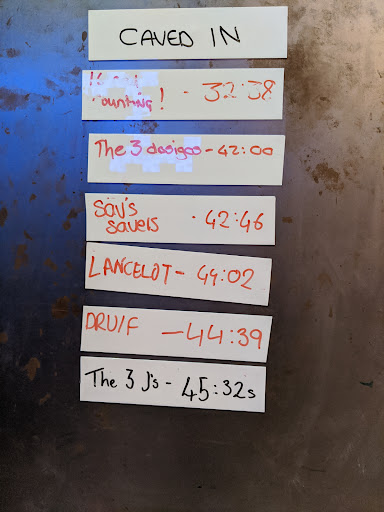 CAVED IN
ounting! - 32:38
The 3 - 42:00
Sav's
savers - 42:46
LANCELOT - 44:02
DRUIF - 44:39
The 3 J's - 45:32s